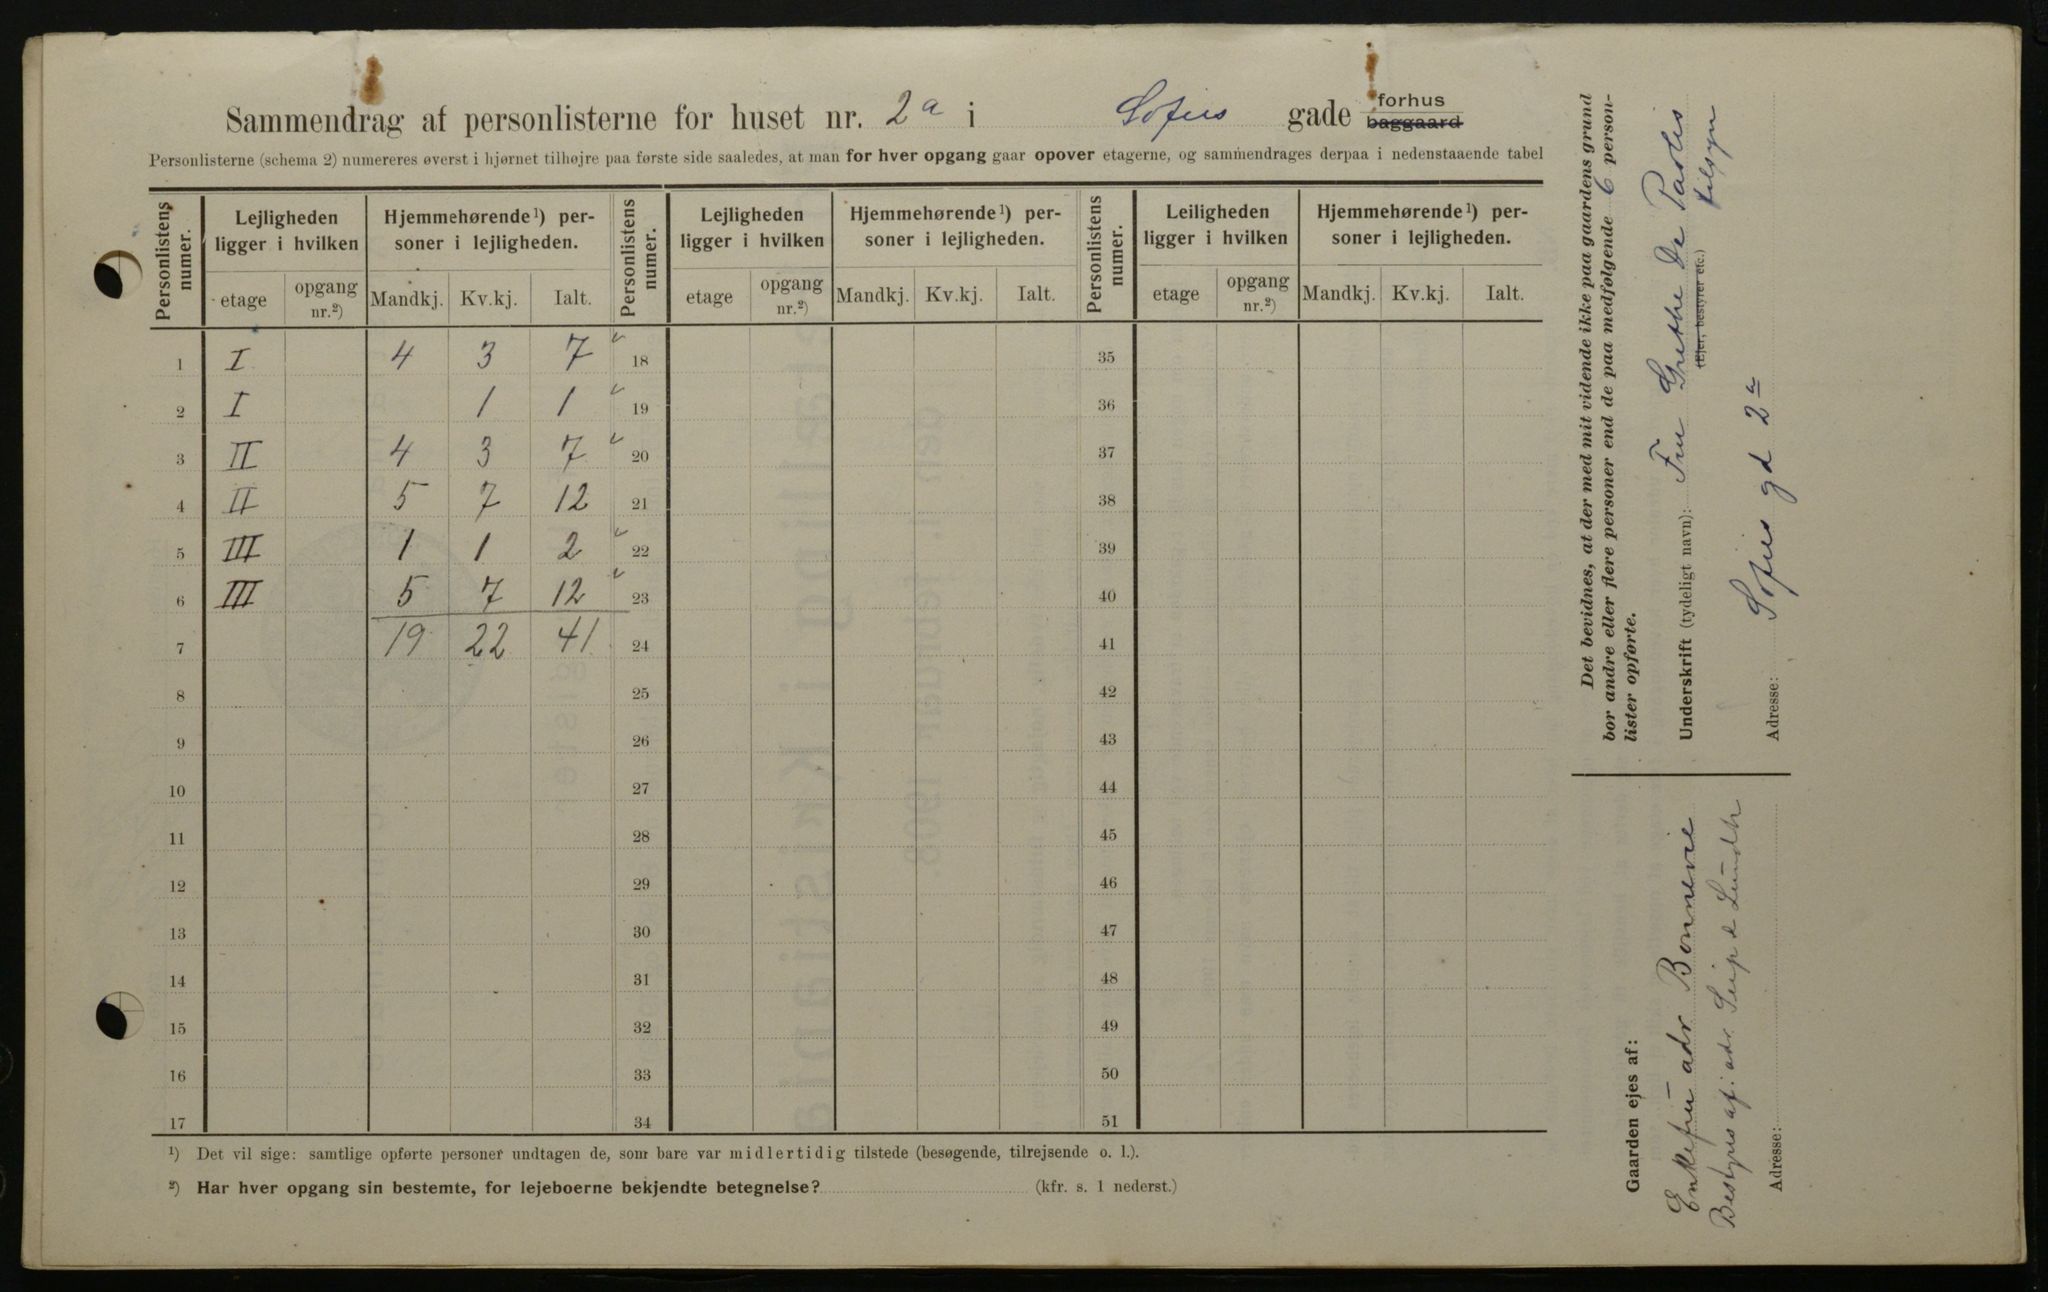 Sammendrag af personlisterne for huset nr. 2a i Sofies gade forhus baggaard
Personlisterne (schema 2) numereres øverst i hjørnet tilhøjre paa første side saaledes, at man for hver opgang gaar opover etagerne, og sammendrages derpaa i nedenstaaende tabel
Personlistens numer. Lejligheden ligger i hvilken Hjemmehørende¹) personer i lejligheden. Personlistens numer. Lejligheden ligger i hvilken Hjemmehørende¹) personer i lejligheden. Personlistens numer. Leiligheden ligger i hvilken Hjemmehørende¹) personer i lejligheden.
etage opgang nr.²) Mandkj. Kv.kj. Ialt. etage opgang nr.²) Mandkj. Kv.kj. Ialt. etage opgang nr.²) Mandkj. Kv.kj. Ialt.
1 I 4 3 7 18 35
2 I 1 1 19 36
3 II 4 3 7 20 37
4 II 5 7 12 21 38
5 III 1 1 2 22 39
6 III 5 7 12 23 40
7 19 22 41 24 41
8 25 42
9 26 43
10 27 44
11 28 45
12 29 46
13 30 47
14 31 48
15 32 49
16 33 50
17 34 51
¹) Det vil sige: samtlige opførte personer undtagen de, som bare var midlertidig tilstede (besøgende, tilrejsende o. l.).
²) Har hver opgang sin bestemte, for lejeboerne bekjendte betegnelse? (kfr. s. 1 nederst.)
Det bevidnes, at der med mit vidende ikke paa gaardens grund
bor andre eller flere personer end de paa medfølgende 6 person-
lister opførte.
Underskrift (tydeligt navn): Fru Grethe De Paolis
(Ejer, bestyrer etc.) tilsyn
Adresse: Sofies gd 2a
Gaarden ejes af:
Enkefru adr Bonnevie
Bestyres af: adr. Lundh
Adresse: